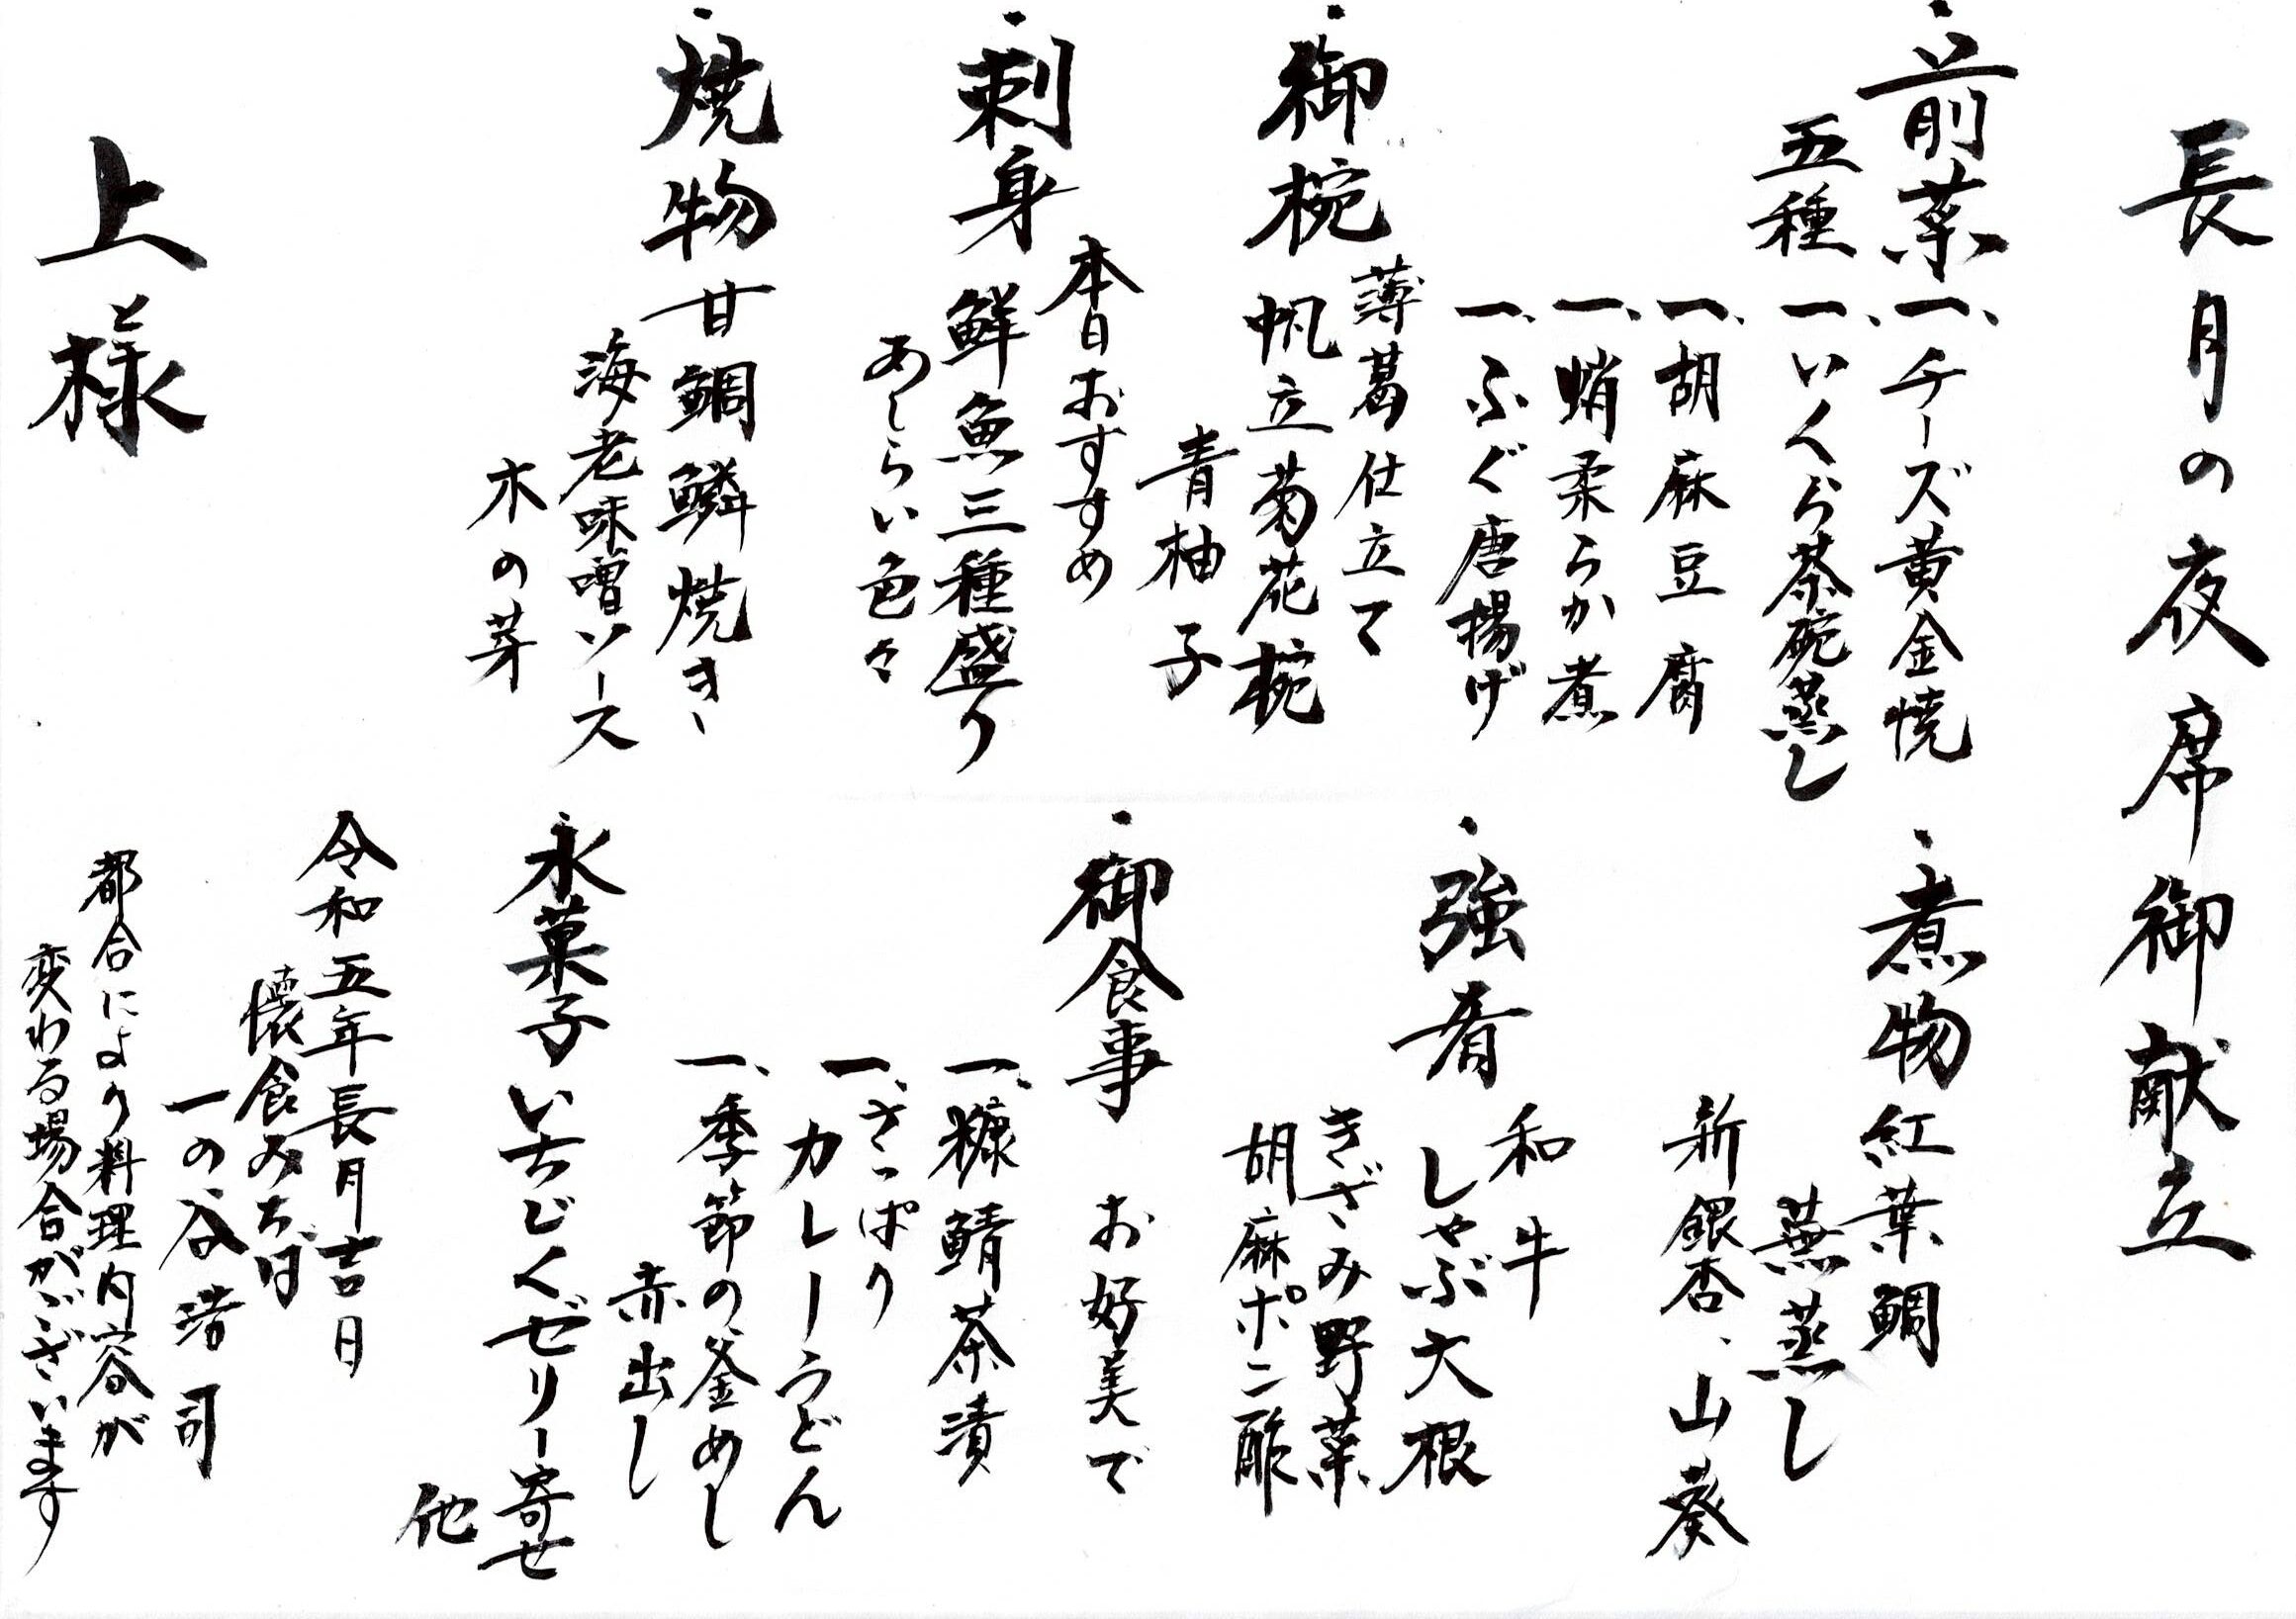 長月の夜席御献立
・前菜
五種
一、チーズ黄金焼
一、いくら茶碗蒸し
一、胡麻豆腐
一、蛸柔らか煮
一、ふぐ唐揚げ
・御椀
薄葛仕立て
帆立菊花椀
青柚子
・刺身
本日おすすめ
鮮魚三種盛り
あしらい色々
・焼物
甘鯛鱗焼き、
海老味噌ソース
木の芽
・煮物
紅葉鯛
蕪蒸し
新銀杏、山葵
・強肴
和牛
しゃぶ大根
きざみ野菜
胡麻ポン酢
・御食事
お好美で
一、糠鯖茶漬
一、さっぱり
カレーうどん
一、季節の釜めし
赤出し
氷菓子
いちじくゼリー寄せ
他
令和五年長月吉日
懐食みちば
一の谷浩司
都合により料理内容が
変わる場合がございます
上様